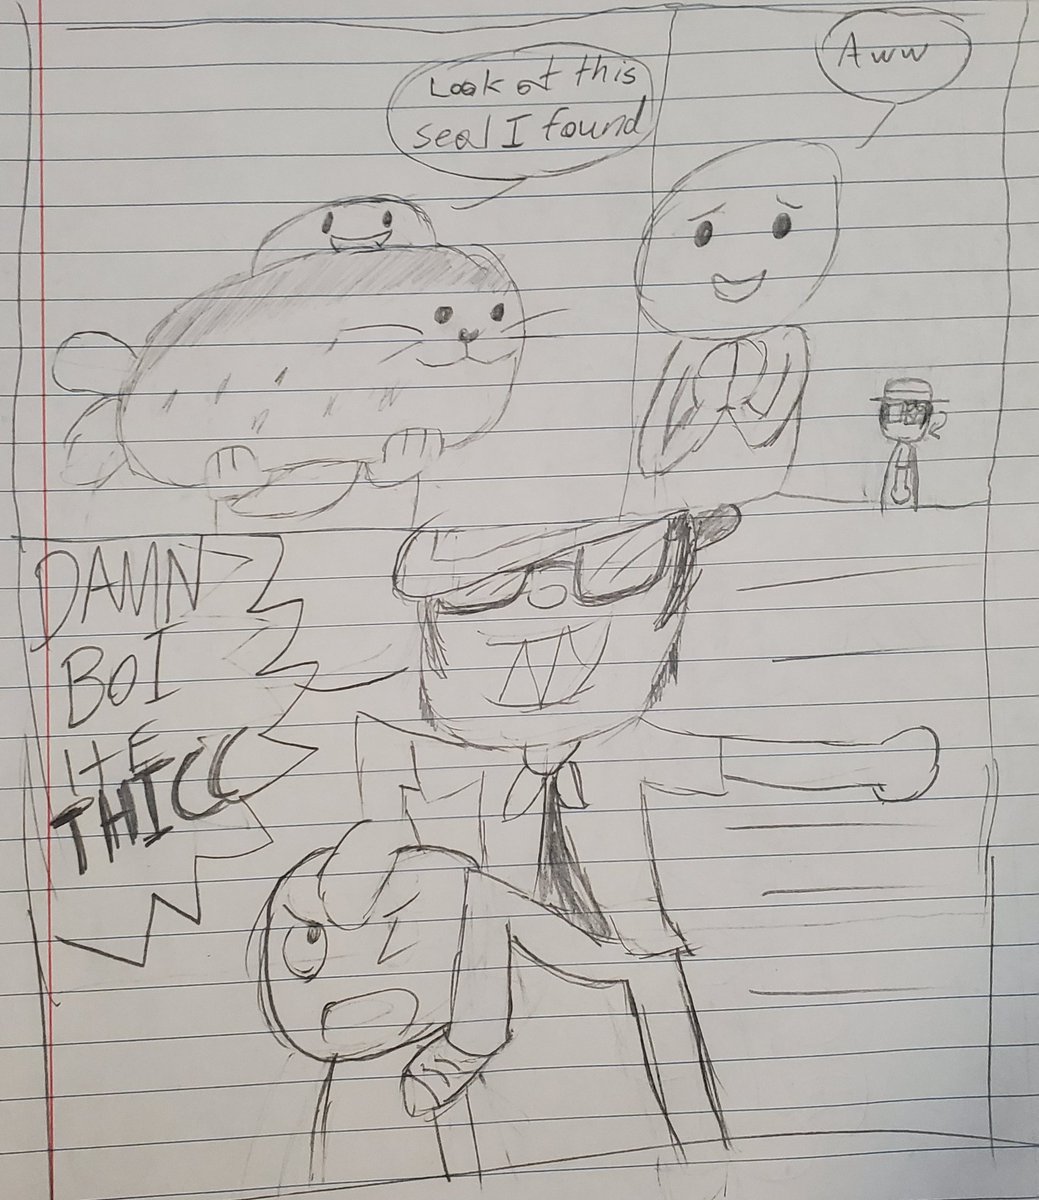 Look at this
seal I found
Aww
DAMN
BOI
HE
THICC